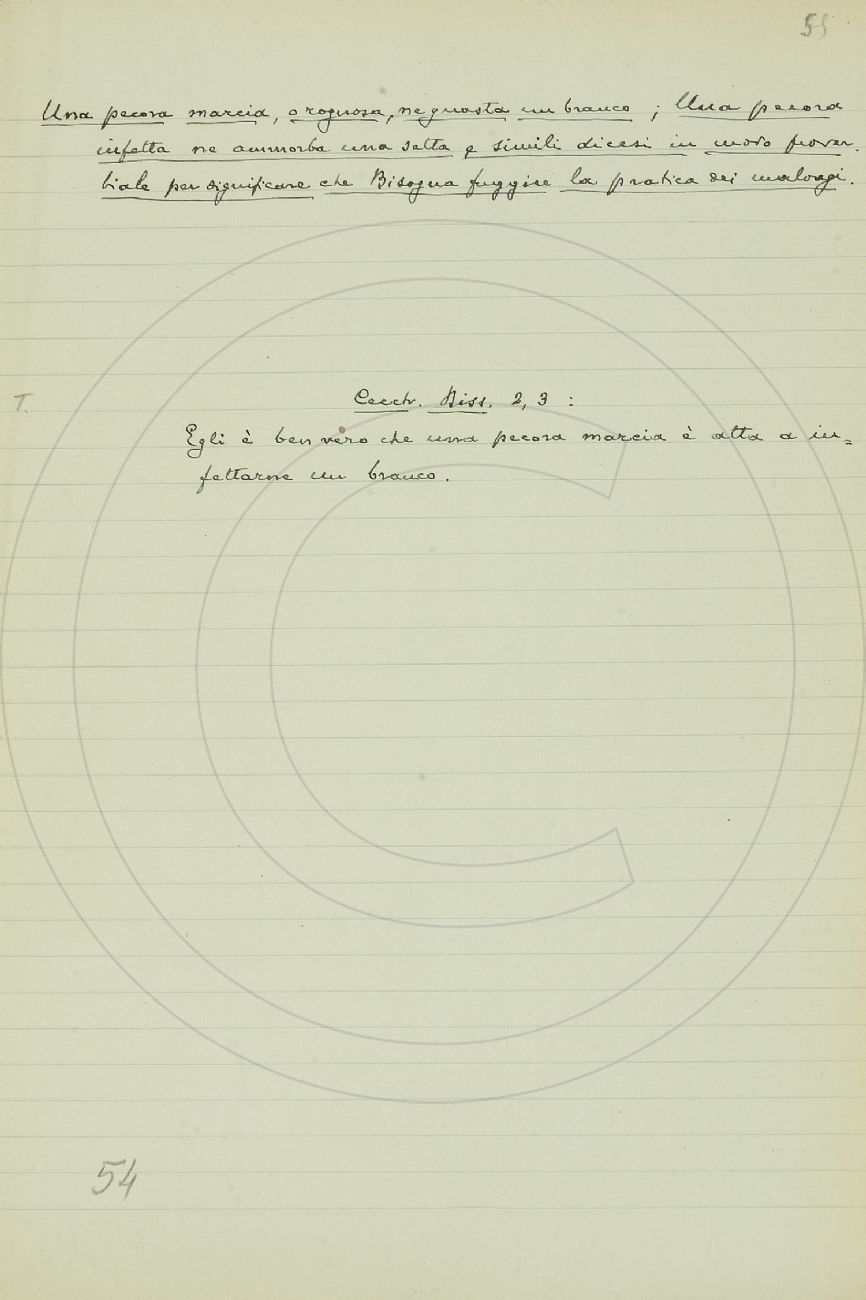 55
Una pecora marcia, o rognosa, ne guasta un branco ; Una pecora
infetta ne ammorba una setta e simili dicesi in modo prover.
biale per significare che Bisogna fuggire la pratica dei malvagi.
T. Cecch. Diss. 2, 3 :
Egli è ben vero che una pecora marcia è atta a in=
fettarne un branco.
54